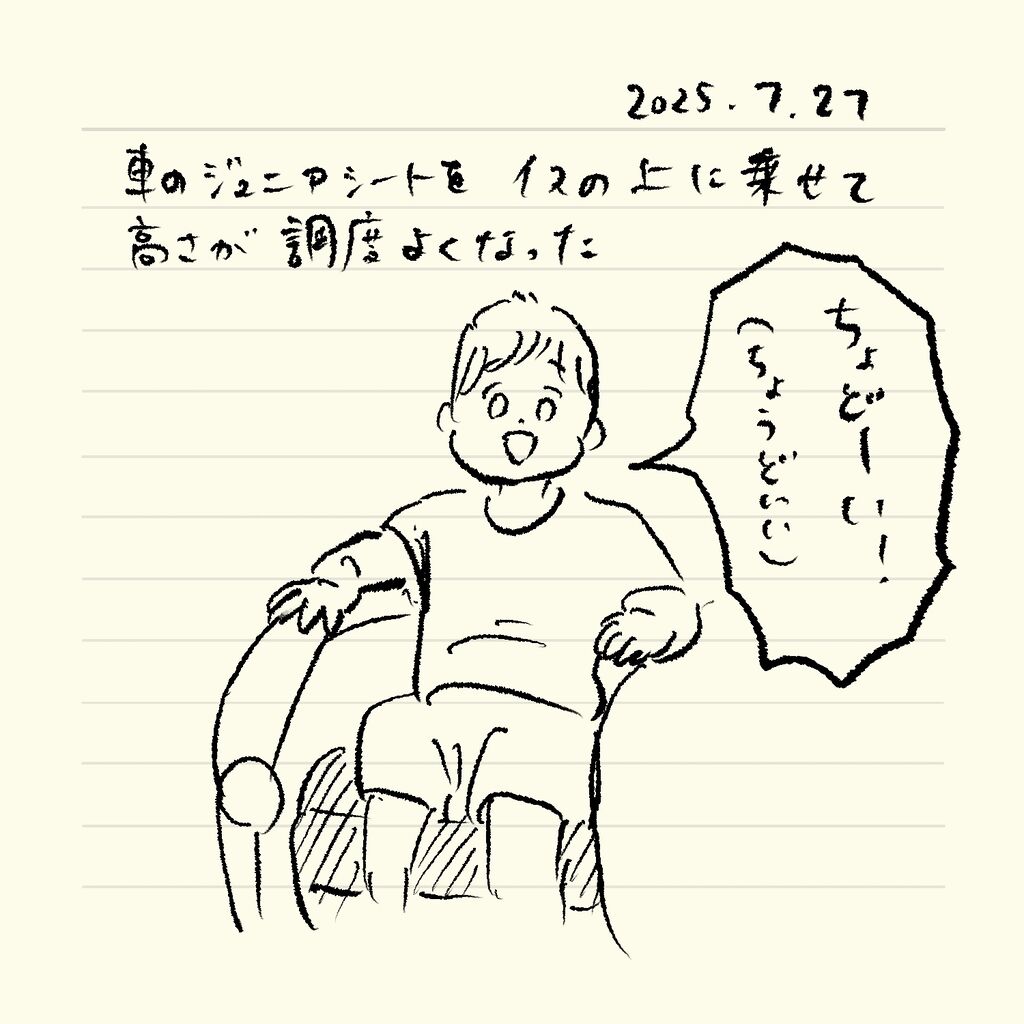 2025.7.27
車のジュニアシートを イスの上に乗せて
高さが 調度よくなった
ちょどーい!
(ちょうどいい)